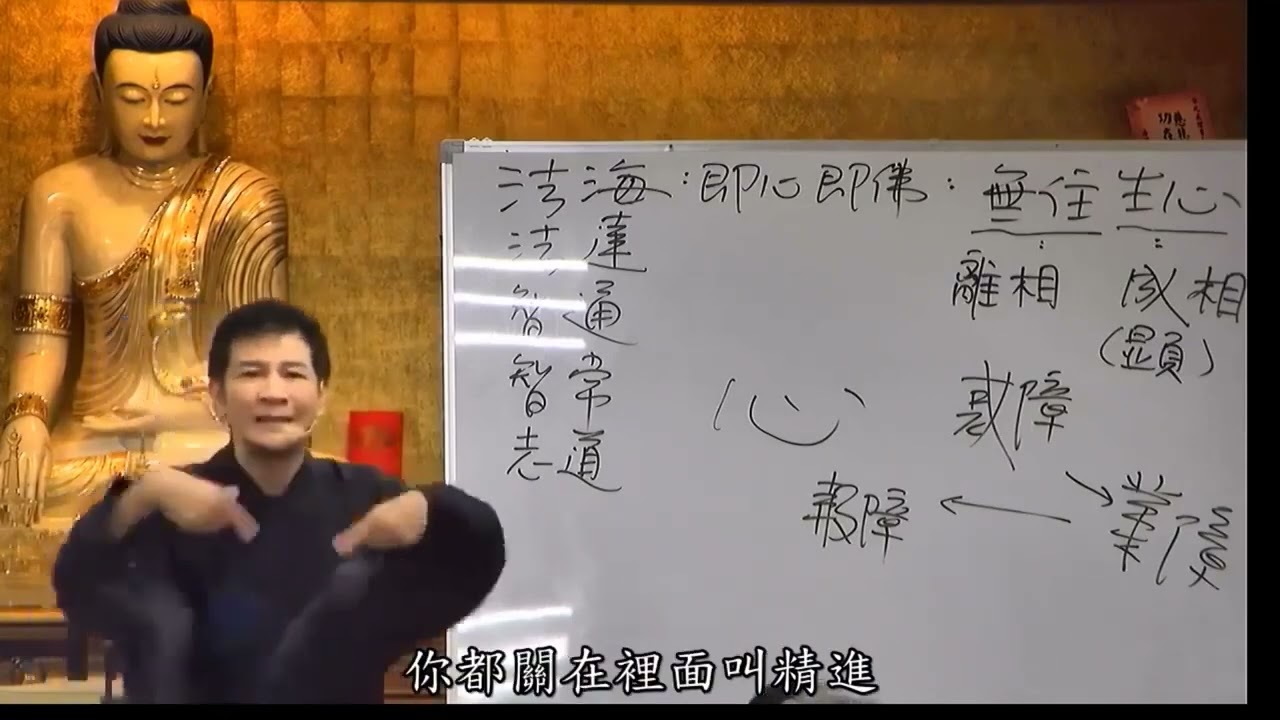 法海：即心即佛：無住生心
法達
離相 成相
智通
(显頁)
智常
心 惑障
志道
報障 業障
你都關在裡面叫精進